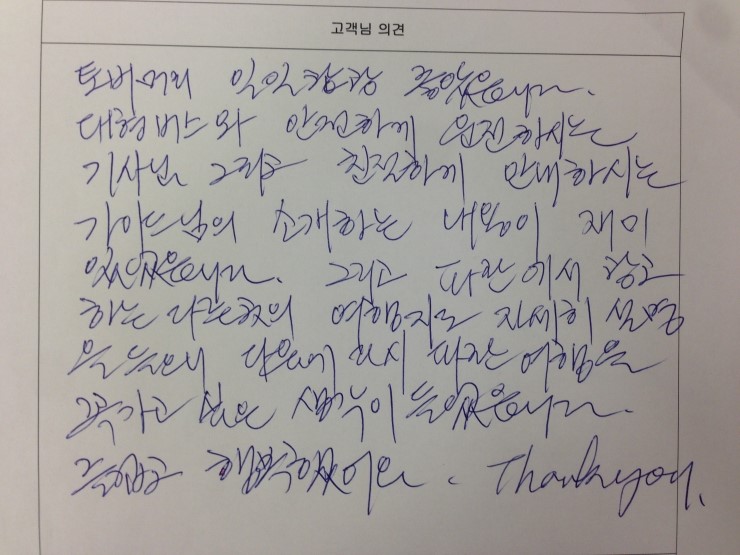 고객님 의견
토버머리 일일관광 좋았습니다.
대형버스와 안전하게 운전하시는
기사님 그리고 친절하게 안내하시는
가이드님의 소개하는 내용이 재미
있었습니다. 그리고 파란에서 광고
하는 다른곳의 여행지도 자세히 설명
을 들으니 다음에 다시 파란여행을
꼭 가고 싶은 생각이 들었습니다.
즐겁고 행복했어요. Thank you.